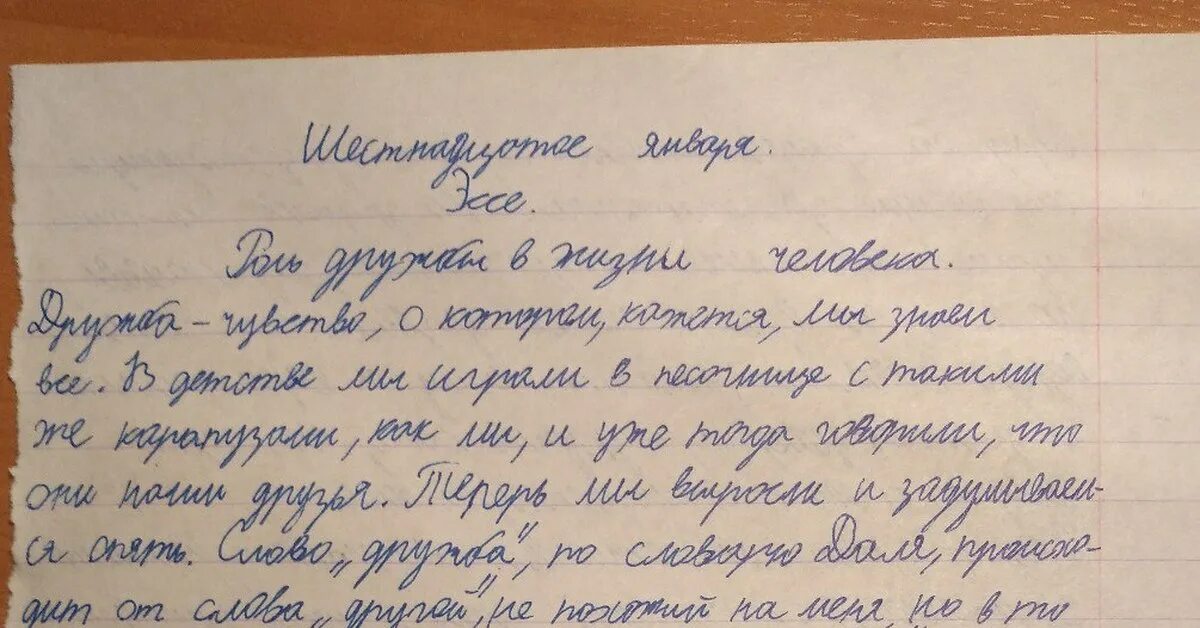 Шестнадцатое января.
Эссе.
Роль дружбы в жизни человека.
Дружба – чувство, о котором, кажется, мы знаем
все. В детстве мы играли в песочнице с такими
же карапузами, как мы, и уже тогда говорили, что
они наши друзья. Теперь мы выросли и задумываем-
ся опять. Слово „дружба", по словарю Даля, происхо-
дит от слова „другой", не похожий на меня, но в то